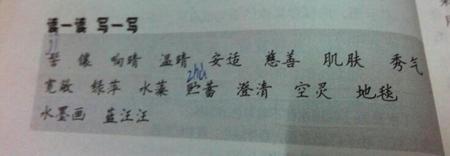 读一读 写一写
jì
髻 镶 响晴 温晴 安适 慈善 肌肤 秀气
zhù
宽敞 绿萍 水藻 贮蓄 澄清 空灵 地毯
水墨画 蓝汪汪